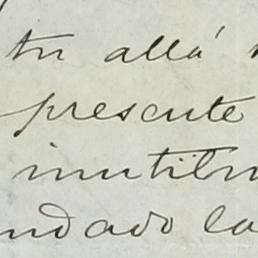 tu allá
presente
inutilm
ndado la